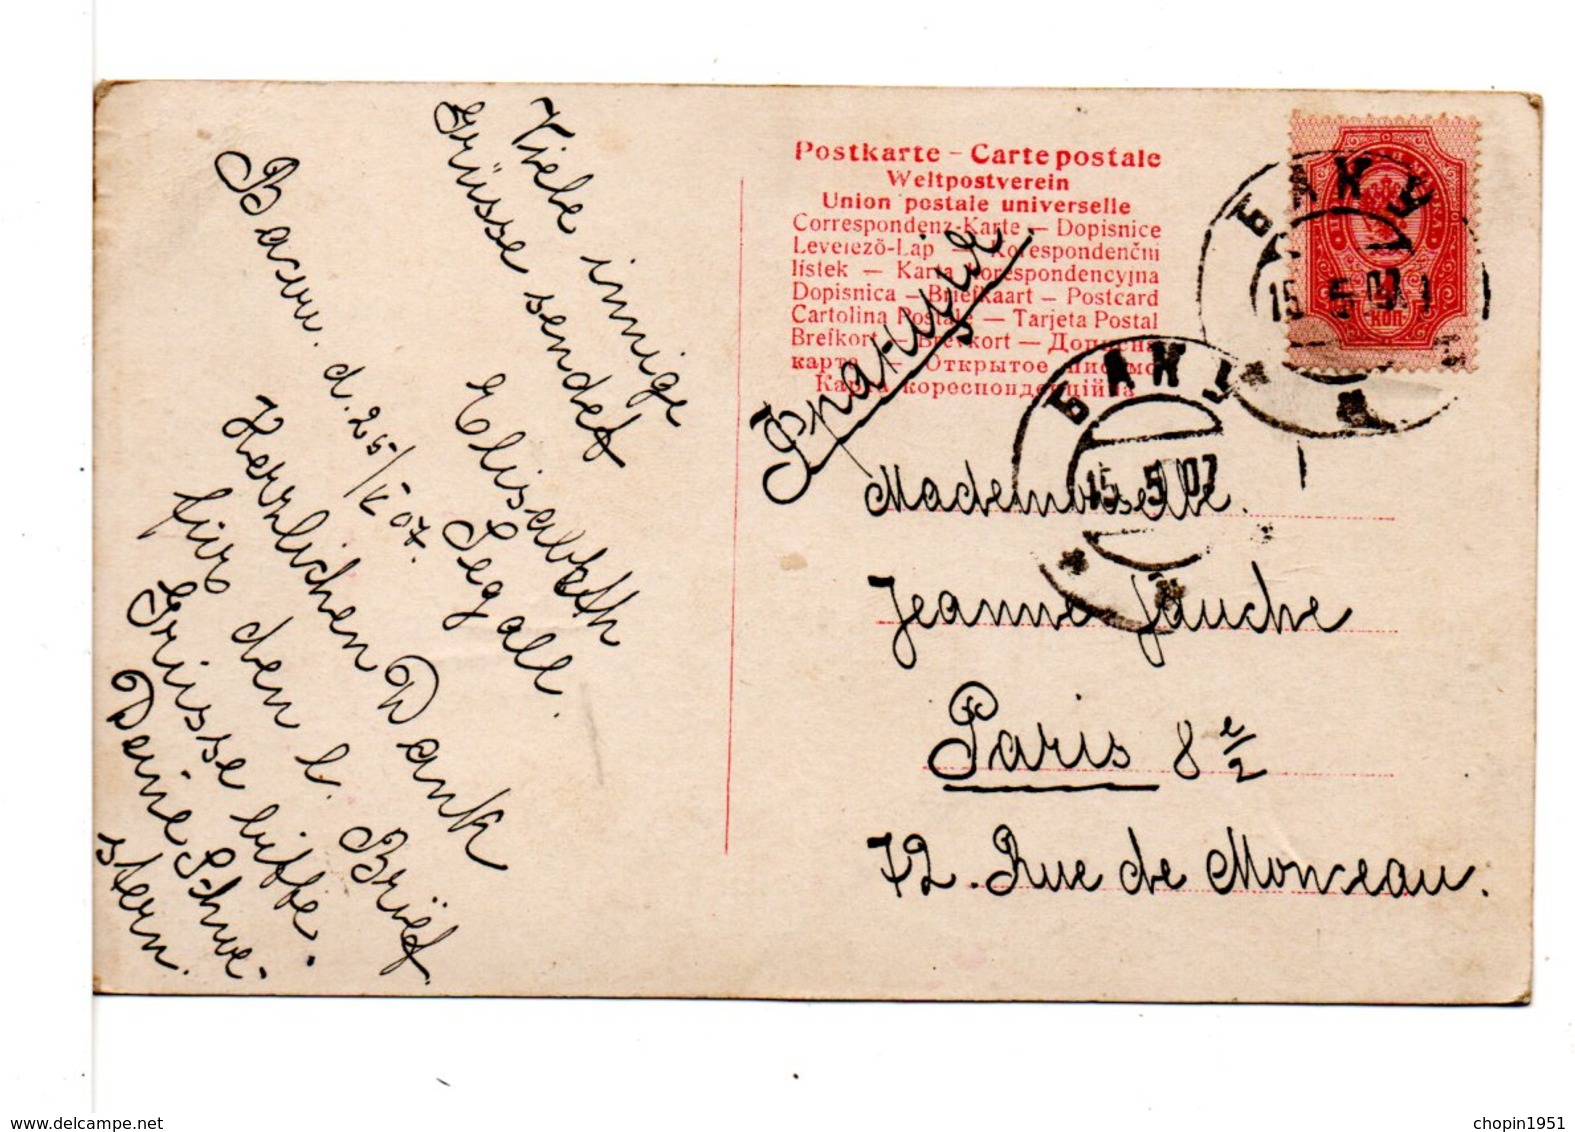 Viele innige
Grüsse sendet
Elisabeth
Segall.
Bacou. d. 25/V 07.
Herzlichen Dank
für den l. Brief
Grüsse bitte
Deine Schwe-
stern.
Postkarte – Carte postale
Weltpostverein
Union postale universelle
Correspondenz-Karte – Dopisnice
Levelező-Lap – Korespondenční
lístek – Karta korespondencyjna
Dopisnica – Briefkaart – Postcard
Cartolina Postale – Tarjeta Postal
Brefkort – Brevkort – Дописна
карта – Открытое письмо
Карта кореспонденційна
Франція
БАКУ
15 5 07
КОП.
БАКУ
15 5 07
Mademoiselle.
Jeanne Fauche
Paris 8 e/2
72. Rue de Monceau.
www.delcampe.net
chopin1951